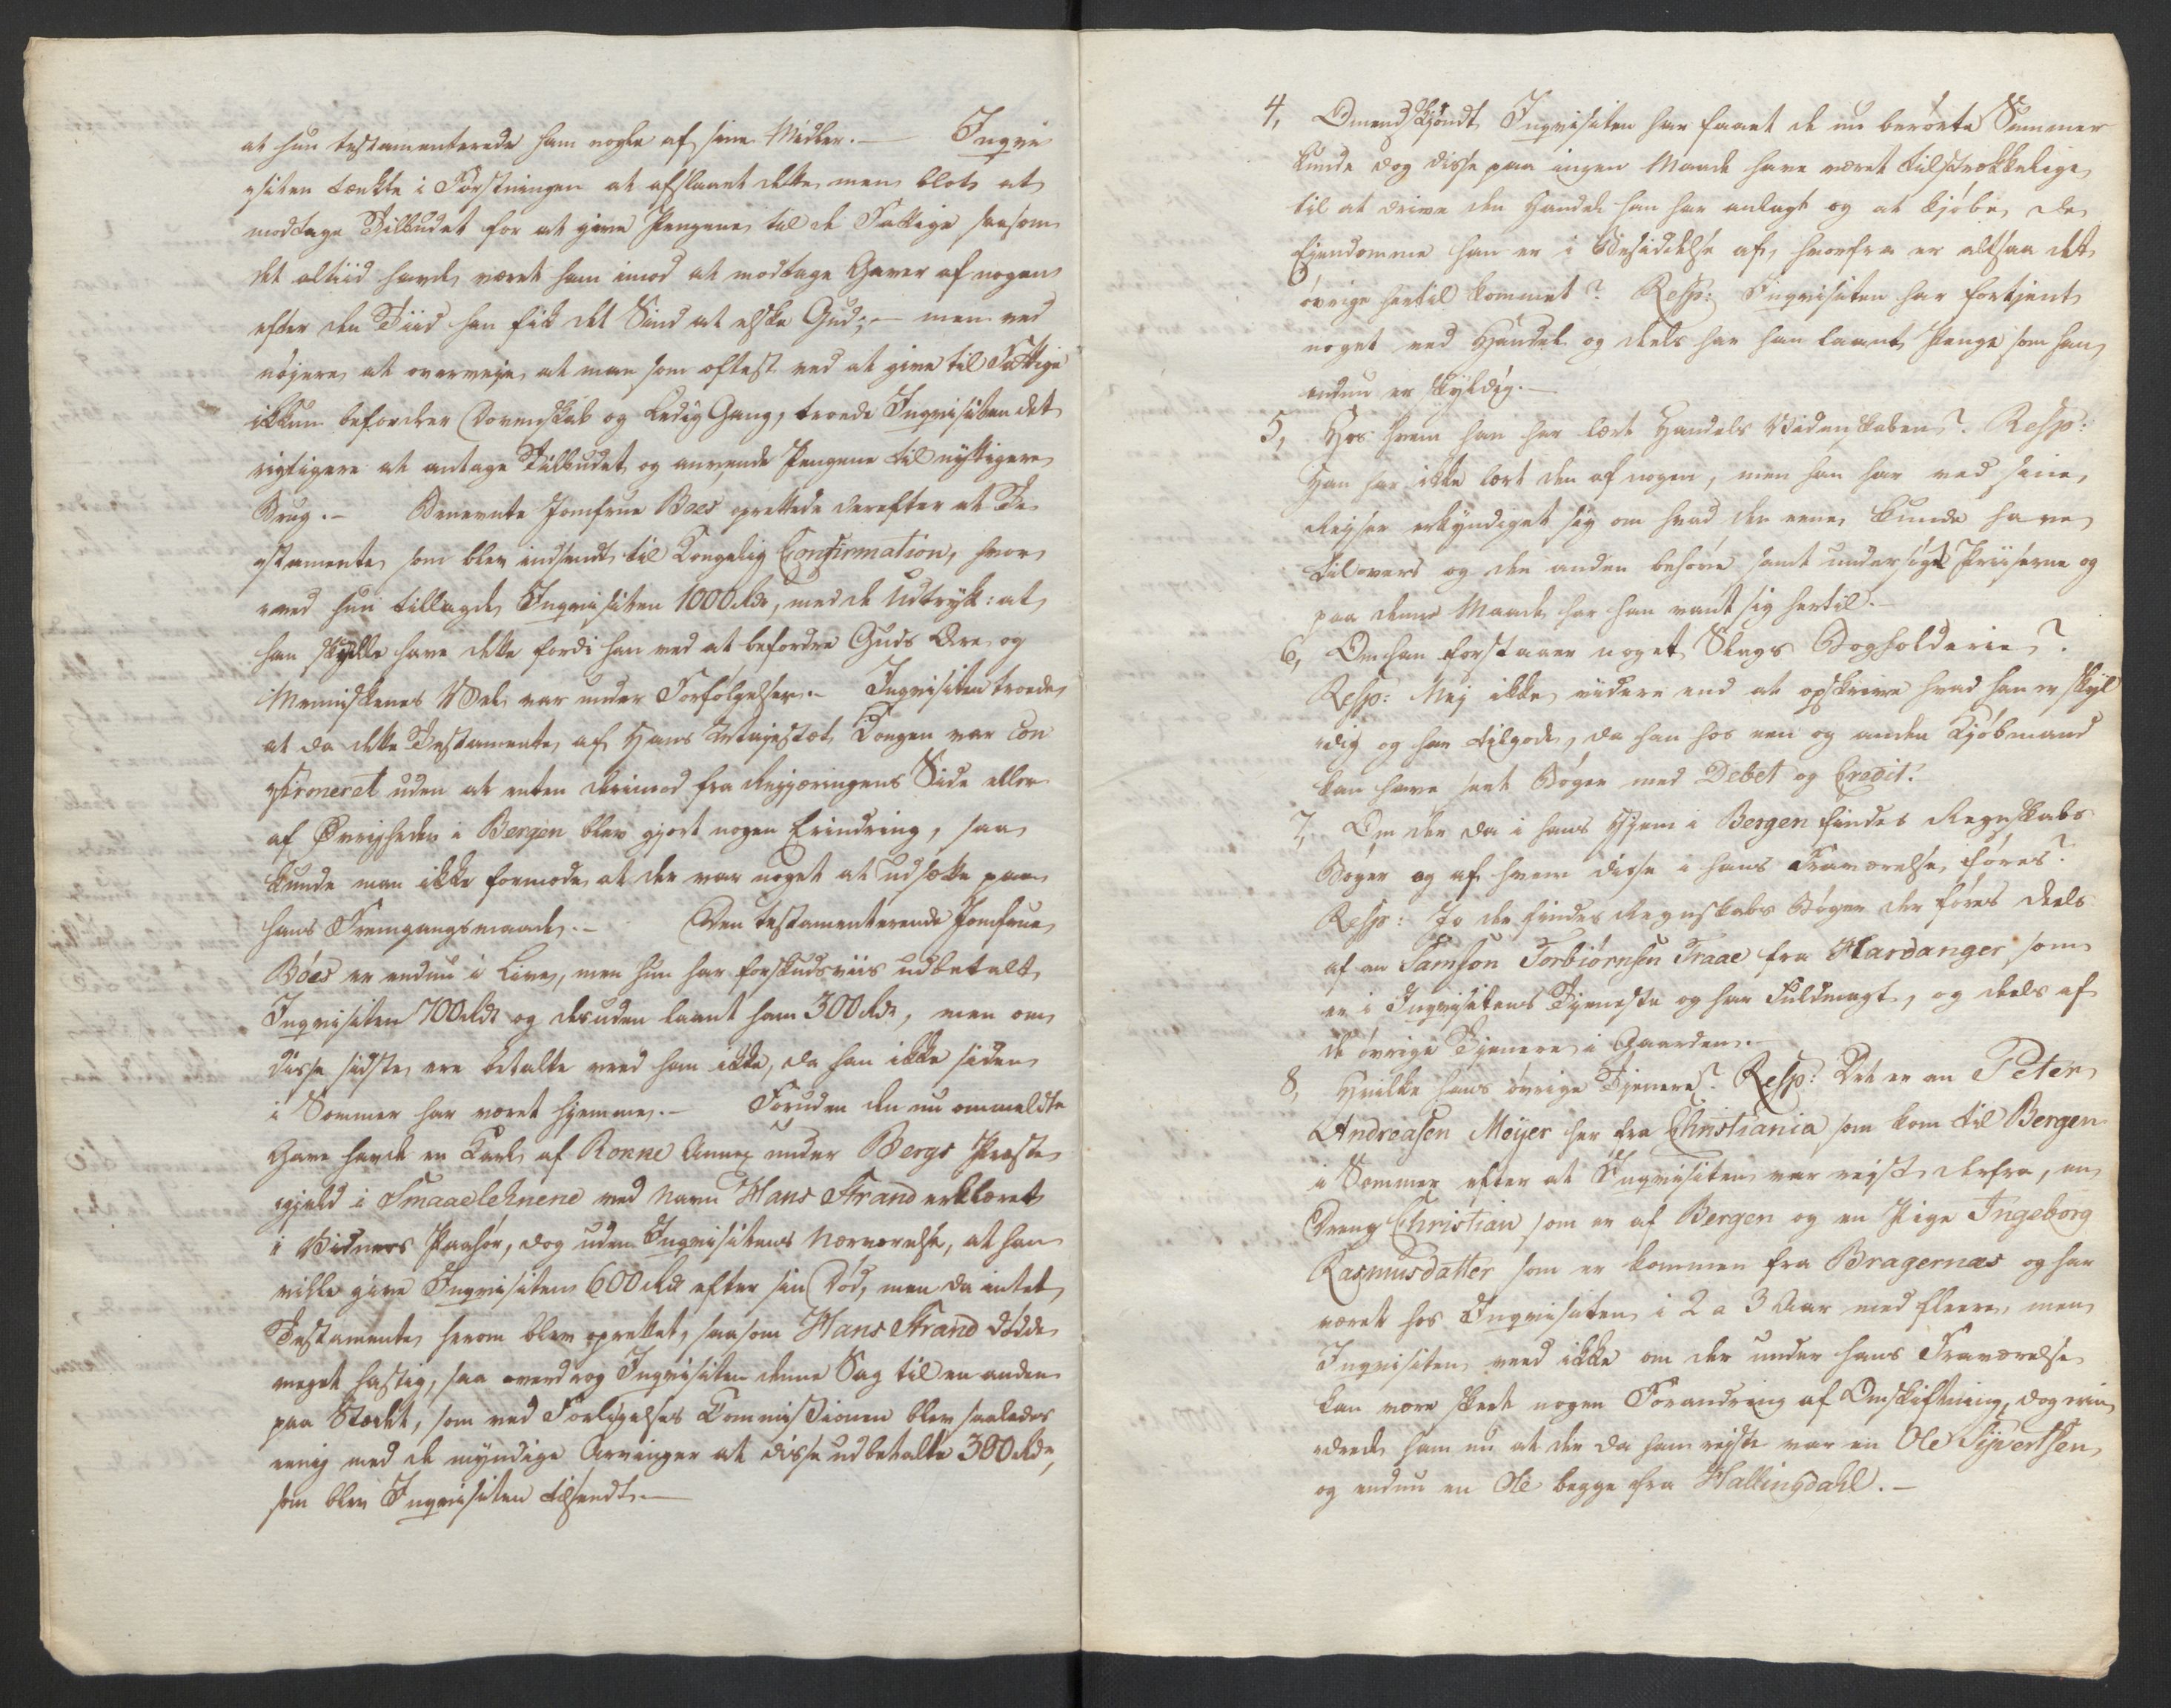 at hun testamenterede ham nogle af sine Midler. — Inqvi
siten tænkte i Førstningen at afslaaet dette men blot at
modtage Tilbudet for at give Pengene til de Fattige saasom
det altiid havde været ham imod at modtage Gaver af nogen
efter den Tiid han fik det Sind at elske Gud; — men ved
nøjere at overveje, at man som oftest ved at give til Fattige
ikkun befordrer Dovenskab og Ledig Gang, troede Inqvisiten det
rigtigere at antage Tilbudet og anvende Pengene til nyttigere
Brug. — Benevnte Jomfrue Boes oprettede derefter et Te
stamente som blev indsendt til Kongelig Confirmation, hvor
ved hun tillagde Inqvisiten 1000 Rdr, med de Udtryk: at
han skulle have dette fordi han ved at befordre Guds Ære og
Menniskenes Vel var under Forfølgelser. — Inqvisiten troede
at da dette Testamente af Hans Majestæt Kongen var con
firmeret uden at enten derimod fra Regjeringens Side eller
af Øvrigheden i Bergen blev gjort nogen Erindring, saa
kunde man ikke formode at der var noget at udsætte paa
hans Fremgangsmaade. — Den testamenterende Jomfrue
Bóes er endnu i Live, men hun har forskudsviis udbetalt
Inqvisiten 700 Rdr og desuden laant ham 300 Rdr, men om
disse sidste ere betalte veed han ikke, da han ikke siden
i Sommer har været hjemme. — Foruden den nu ommeldte
Gave havde en Karl af Ronne Annex under Bergs Præste
gjeld i Smaaelehnene ved Navn Hans Strand erklæret
i Vidners Paahør, dog uden Inqvisitens Nærværelse, at han
ville give Inqvisiten 600 Rdr efter sin Død, men da intet
Testamente herom blev oprettet, saasom Hans Strand døde
meget hastig, saa overdrog Inqvisiten denne Sag til en anden
paa Stædet, som ved Forligelses Commissionen blev saaledes
eenig med de myndige Arvinger at disse udbetalte 300 Rdr,
som blev Inqvisiten tilsendt. —
4, Omendskjøndt Inqvisiten har faaet de nu berørte Summer
kunde dog disse paa ingen Maade have været tilstrækkelige
til at drive den Handel han har anlagt og at kjøbe de
Ejendomme han er i Besiddelse af, hvorfra er altsaa det
øvrige hertil kommet? Resp: Inqvisiten har fortjent
noget ved Handel og deels har han laant Penge som han
endnu er skyldig. —
5, Hos hvem han har lært Handels Videnskaben? Resp:
Han har ikke lært den af nogen, men han har ved sine
Rejser erkyndiget sig om hvad den eene kunde have
tilovers og den anden behøve samt undersøgt Priiserne og
paa denne Maade har han vant sig hertil. —
6, Om han forstaaer noget Slags Bogholderie?
Resp: Nej ikke videre end at opskrive hvad han er skyl
dig og har tilgode, da han hos een og anden Kjøbmand
kan have seet Bøger med Debet og Credit.
7, Om der da i hans Hjem i Bergen findes Regnskabs
Bøger og af hvem disse i hans Fraværelse føres?
Resp: Jo der findes Regnskabs Bøger der føres deels
af en Samson Torbiørnsen Traae fra Hardanger som
er i Inqvisitens Tjeneste og har Fuldmagt, og deels af
de øvrige Tjenere i Gaarden. —
8, Hvilke hans øvrige Tjenere? Resp: Det er en Peter
Andreasen Meyer her fra Christiania som kom til Bergen
i Sommer efter at Inqvisiten var rejst derfra, en
Dreng Christian som er af Bergen og en Pige Ingeborg
Rasmusdatter som er kommen fra Bragernæs og har
været hos Inqvisiten i 2 a 3 Aar med fleere, men
Inqvisiten veed ikke om der under hans Fraværelse
kan være skeet nogen Forandring af Omskiftning, dog erin
drede han nu at der da han rejste var en Ole Syvertsen
og endnu en Ole begge fra Hallingdahl. —